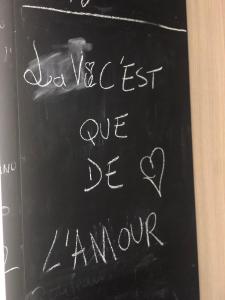 La Vie C'EST
QUE
DE ♡
L'AMOUR